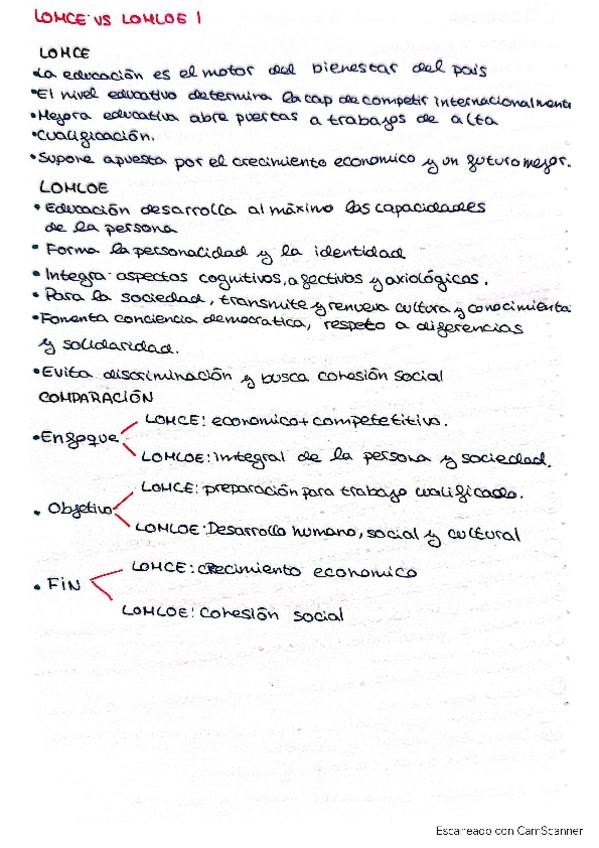 LOMCE VS LOMLOE 1
LOMCE
• La educación es el motor del bienestar del pais
• El nivel educativo determina la cap de competir internacionalmente
• Mejora educativa abre puertas a trabajos de alta
• Cualificación.
• Supone apuesta por el crecimiento economico y un futuro mejor.
LOMLOE
• Educación desarrolla al máximo las capacidades
de la persona
• Forma la personalidad y la identidad
• Integra aspectos cognitivos, afectivos y axiológicos.
• Para la sociedad, transmite y renueva cultura y conocimiento
• Fomenta conciencia democratica, respeto a diferencias
y solidaridad.
• Evita discriminación y busca cohesión social
COMPARACIÓN
LOMCE: economico + competetitivo.
• Enfoque
LOMLOE: integral de la persona y sociedad.
LOMCE: preparación para trabajo cualificado.
• Objetivo
LOMLOE: Desarrollo humano, social y cultural
LOMCE: crecimiento economico
• FIN
LOMLOE: Cohesión social
Escaneado con CamScanner